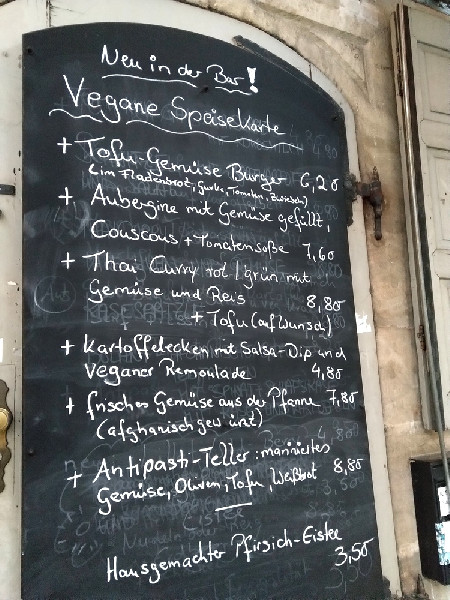 Neu in der Bar!
Vegane Speisekarte
+ Tofu-Gemüse Burger 6,20
(im Fladenbrot, Gurke, Tomaten, Zwiebeln)
+ Aubergine mit Gemüse gefüllt,
Couscous + Tomatensoße 7,60
+ Thai Curry rot / grün mit
Gemüse und Reis 8,80
+ Tofu (auf Wunsch)
+ Kartoffelecken mit Salsa-Dip und
veganer Remoulade 4,80
+ frisches Gemüse aus der Pfanne 7,80
(afghanisch gewürzt)
+ Antipasti-Teller: mariniertes
Gemüse, Oliven, Tofu, Weißbrot 8,80
Hausgemachter Pfirsich-Eistee
3,50